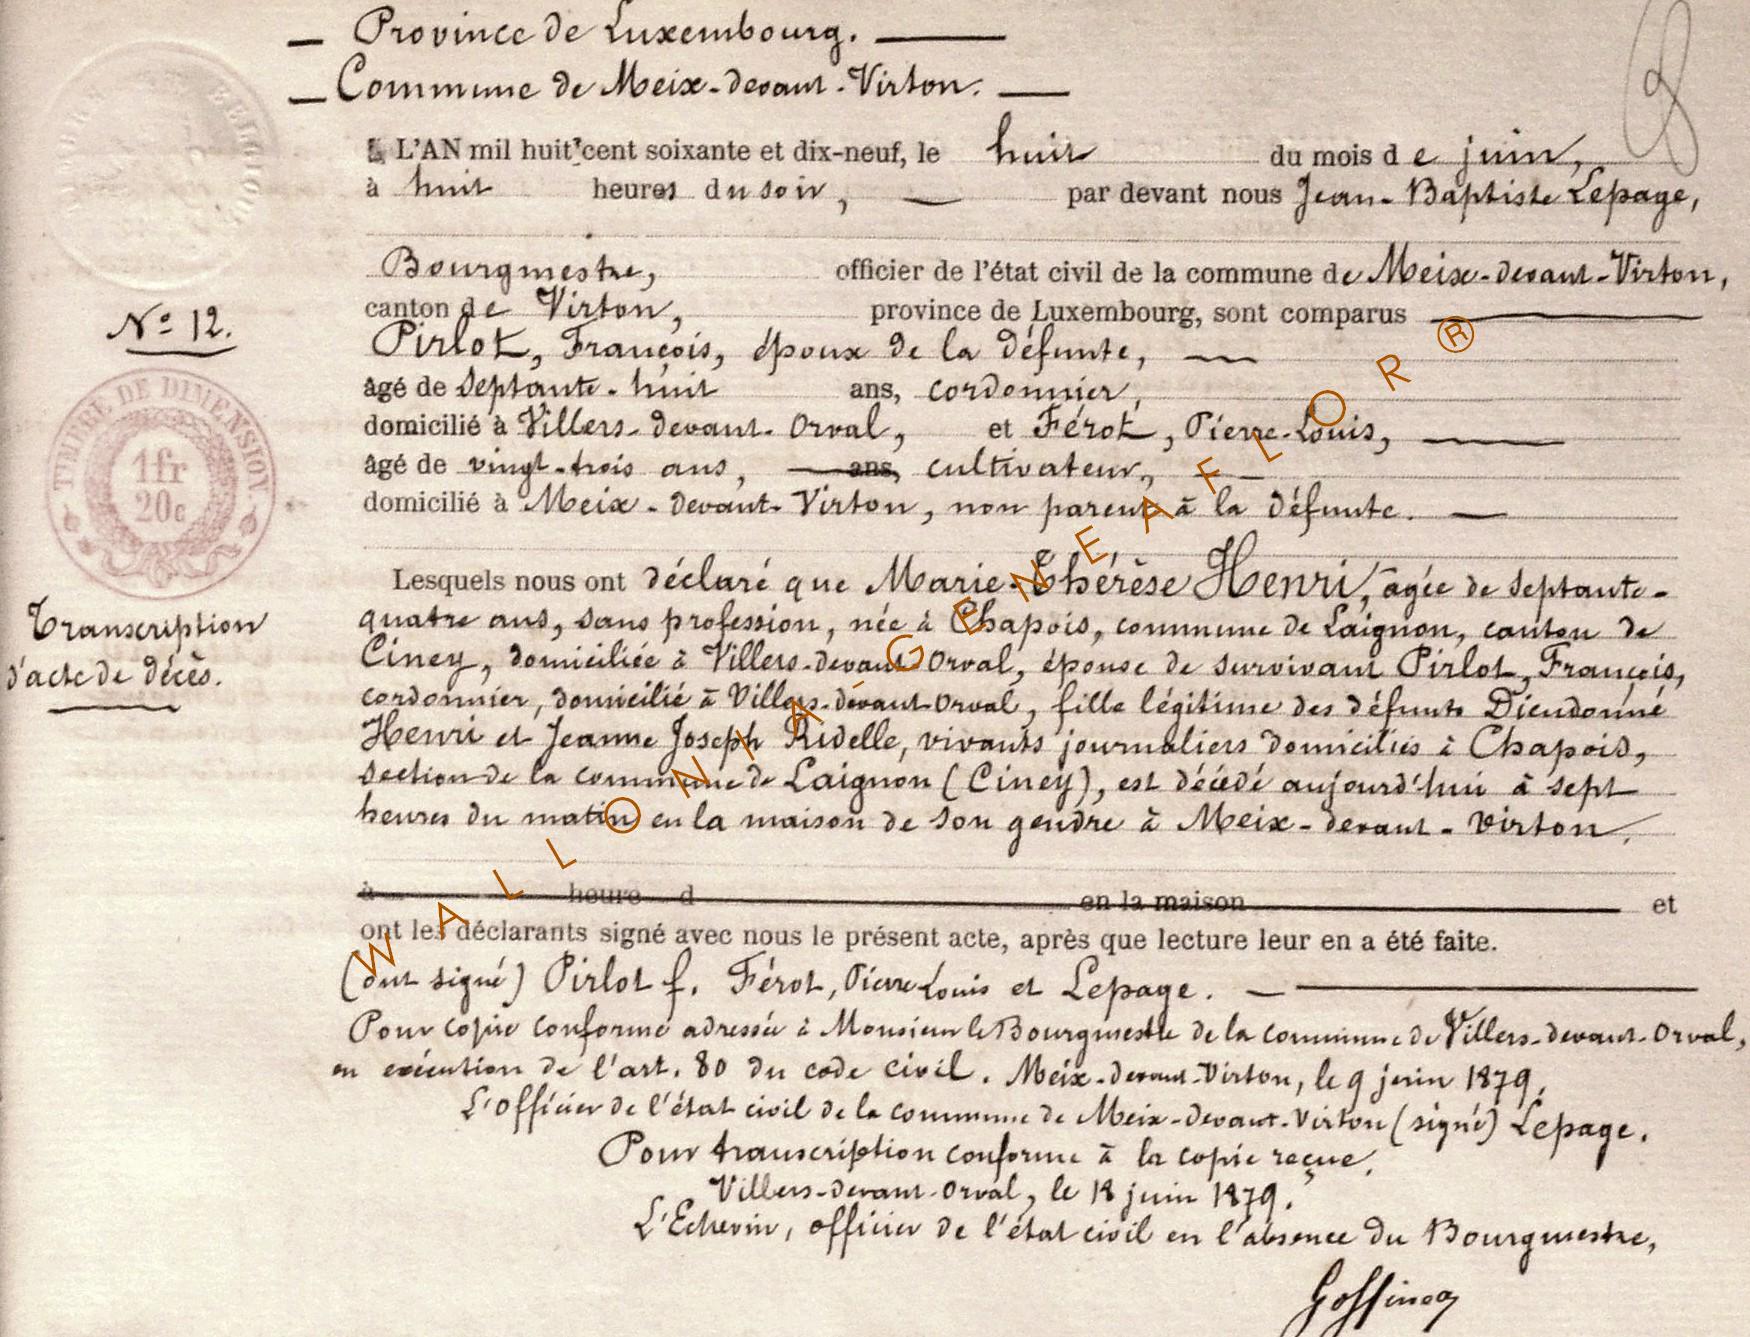 Province de Luxembourg.
Commune de Meix-devant-Virton.
L'AN mil huit cent soixante et dix-neuf, le huit du mois de juin,
à huit heures du soir, par devant nous Jean-Baptiste Lepage,
Bourgmestre, officier de l'état civil de la commune de Meix-devant-Virton,
canton de Virton, province de Luxembourg, sont comparus
Pirlot, François, époux de la défunte,
âgé de septante-huit ans, cordonnier,
domicilié à Villers-devant-Orval, et Férot, Pierre-Louis,
âgé de vingt-trois ans, ans, cultivateur,
domicilié à Meix-devant-Virton, non parent à la défunte.
Lesquels nous ont déclaré que Marie-Thérèse Henri, agée de septante-
quatre ans, sans profession, née à Chapois, commune de Laignon, canton de
Ciney, domiciliée à Villers-devant-Orval, épouse de survivant Pirlot, François,
cordonnier, domicilié à Villers-devant-Orval, fille légitime des défunts Dieudonné
Henri et Jeanne Joseph Ridelle, vivants journaliers domiciliés à Chapois,
section de la commune de Laignon (Ciney), est décédé aujourd'hui à sept
heures du matin en la maison de son gendre à Meix-devant-Virton.
à heure d en la maison et
ont les déclarants signé avec nous le présent acte, après que lecture leur en a été faite.
(ont signé) Pirlot f. Férot, Pierre Louis et Lepage.
Pour copie conforme adressée à Monsieur le Bourgmestre de la commune de Villers-devant-Orval,
en exécution de l'art. 80 du code civil. Meix-devant-Virton, le 9 juin 1879.
L'Officier de l'état civil de la commune de Meix-devant-Virton (signé) Lepage.
Pour transcription conforme à la copie reçue.
Villers-devant-Orval, le 18 juin 1879.
L'Echevin, officier de l'état civil en l'absence du Bourgmestre,
Goffinez
8
No 12.
TIMBRE DE DIMENSION.
1fr
20c
Transcription
d'acte de décès.
WALLONIA-GENEAFLOR®